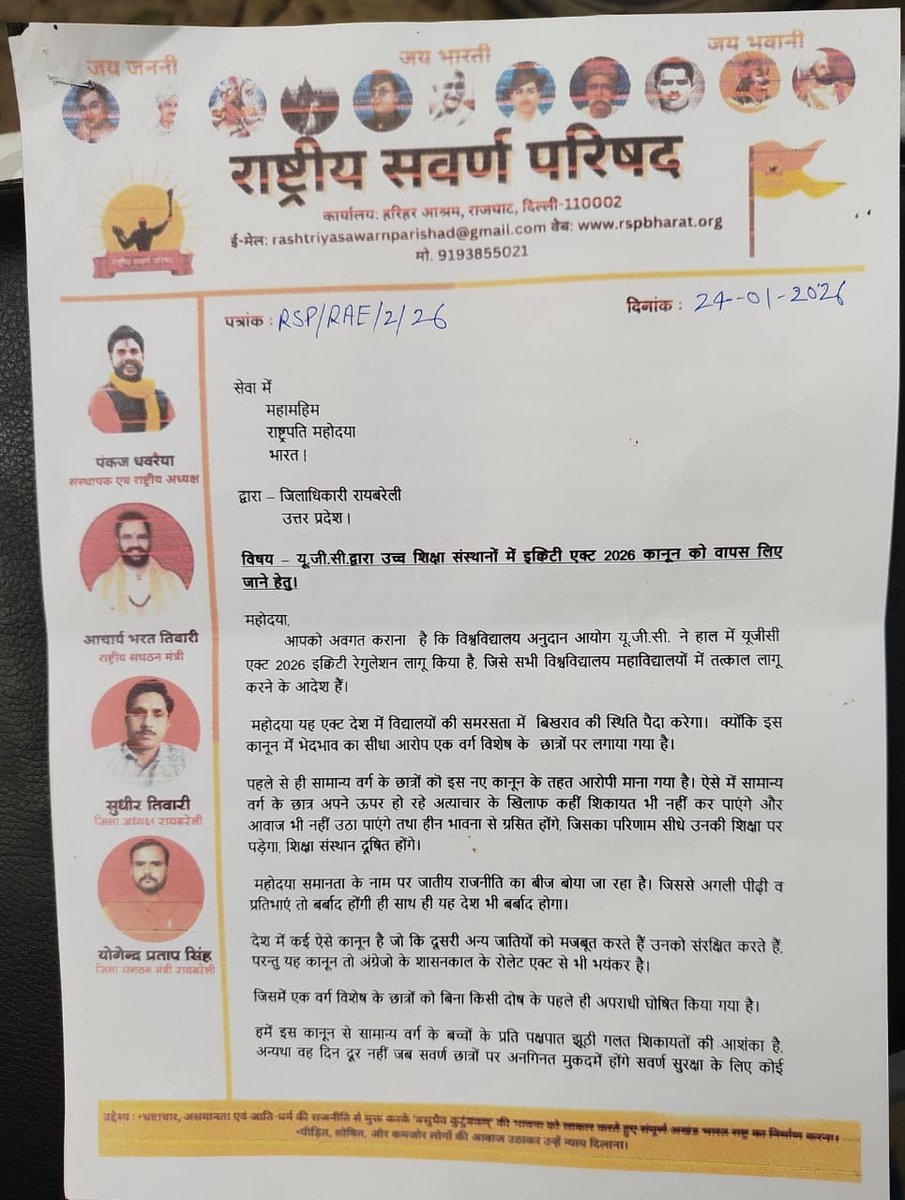 जय जननी
जय भारती
जय भवानी
राष्ट्रीय सवर्ण परिषद
कार्यालय: हरिहर आश्रम, राजघाट, दिल्ली-110002
ई-मेल: rashtriyasawarnparishad@gmail.com वेब: www.rspbharat.org
मो. 9193855021
राष्ट्रीय सवर्ण परिषद
पत्रांक : RSP/RAE/2/26
दिनांक : 24-01-2026
पंकज धवरैया
संस्थापक एवं राष्ट्रीय अध्यक्ष
आचार्य भरत तिवारी
राष्ट्रीय संगठन मंत्री
सुधीर तिवारी
जिला अध्यक्ष रायबरेली
योगेन्द्र प्रताप सिंह
जिला संगठन मंत्री रायबरेली
सेवा में
महामहिम
राष्ट्रपति महोदया
भारत।
द्वारा – जिलाधिकारी रायबरेली
उत्तर प्रदेश।
विषय – यू.जी.सी.द्वारा उच्च शिक्षा संस्थानों में इक्विटी एक्ट 2026 कानून को वापस लिए
जाने हेतु।
महोदया,
आपको अवगत कराना है कि विश्वविद्यालय अनुदान आयोग यू.जी.सी. ने हाल में यूजीसी
एक्ट 2026 इक्विटी रेगुलेशन लागू किया है, जिसे सभी विश्वविद्यालय महाविद्यालयों में तत्काल लागू
करने के आदेश हैं।
महोदया यह एक्ट देश में विद्यालयों की समरसता में बिखराव की स्थिति पैदा करेगा। क्योंकि इस
कानून में भेदभाव का सीधा आरोप एक वर्ग विशेष के छात्रों पर लगाया गया है।
पहले से ही सामान्य वर्ग के छात्रों को इस नए कानून के तहत आरोपी माना गया है। ऐसे में सामान्य
वर्ग के छात्र अपने ऊपर हो रहे अत्याचार के खिलाफ कहीं शिकायत भी नहीं कर पाएंगे और
आवाज भी नहीं उठा पाएंगे तथा हीन भावना से ग्रसित होंगे, जिसका परिणाम सीधे उनकी शिक्षा पर
पड़ेगा, शिक्षा संस्थान दूषित होंगे।
महोदया समानता के नाम पर जातीय राजनीति का बीज बोया जा रहा है। जिससे अगली पीढ़ी व
प्रतिभाएं तो बर्बाद होंगी ही साथ ही यह देश भी बर्बाद होगा।
देश में कई ऐसे कानून है जो कि दूसरी अन्य जातियों को मजबूत करते हैं उनको संरक्षित करते हैं,
परन्तु यह कानून तो अंग्रेजो के शासनकाल के रोलेट एक्ट से भी भयंकर है।
जिसमें एक वर्ग विशेष के छात्रों को बिना किसी दोष के पहले ही अपराधी घोषित किया गया है।
हमें इस कानून से सामान्य वर्ग के बच्चों के प्रति पक्षपात झूठी गलत शिकायतों की आशंका है,
अन्यथा वह दिन दूर नहीं जब सवर्ण छात्रों पर अनगिनत मुकदमें होंगे सवर्ण सुरक्षा के लिए कोई
उद्देश्य : •भ्रष्टाचार, असमानता एवं जाति-धर्म की राजनीति से मुक्त करके 'वसुधैव कुटुंबकम्' की भावना को साकार करते हुए संपूर्ण अखंड भारत राष्ट्र का निर्माण करना।
•पीड़ित, शोषित, और कमजोर लोगों की आवाज उठाकर उन्हें न्याय दिलाना।